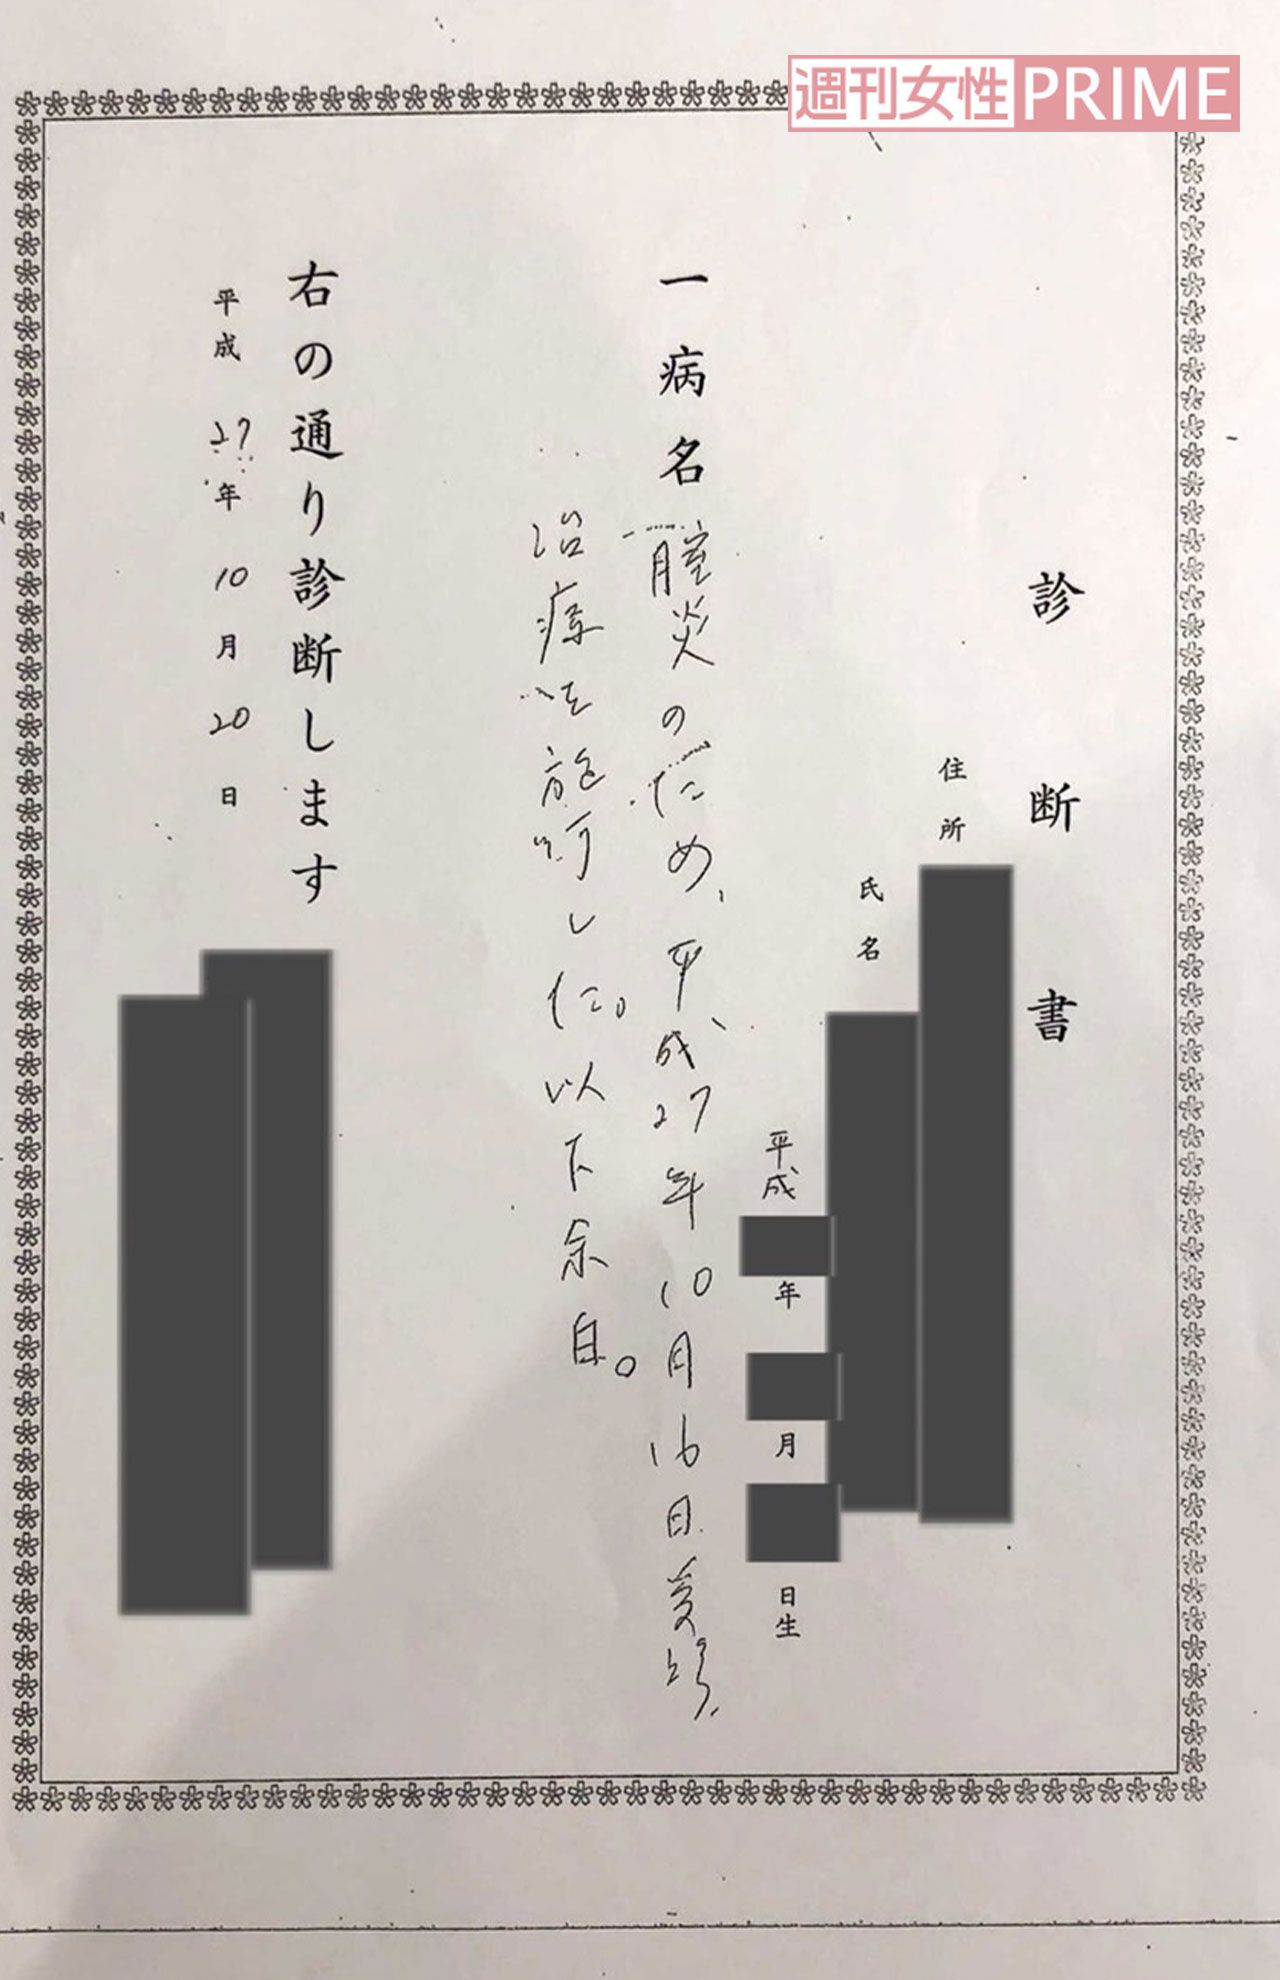 週刊女性PRIME
診断書
住所
氏名
平成 年 月 日生
一病名 腟炎のため、平成27年10月16日受診、
治療を施行した。以下余白。
右の通り診断します
平成27年10月20日